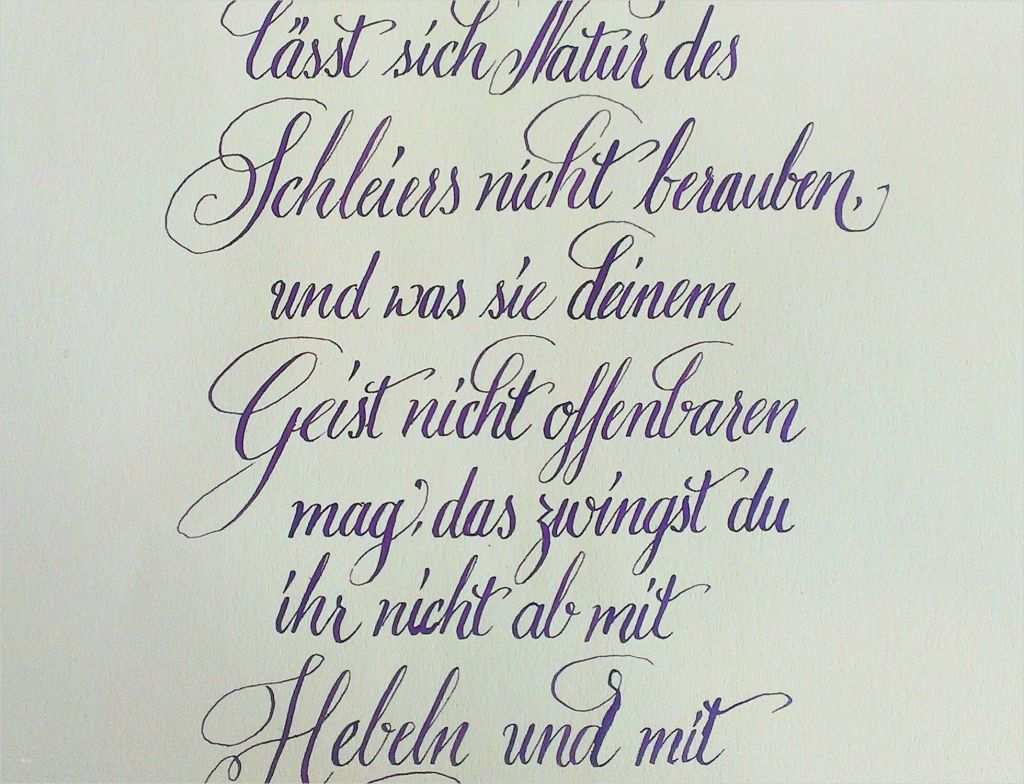 lässt sich Natur des
Schleiers nicht berauben,
und was sie deinem
Geist nicht offenbaren
mag, das zwingst du
ihr nicht ab mit
Hebeln und mit